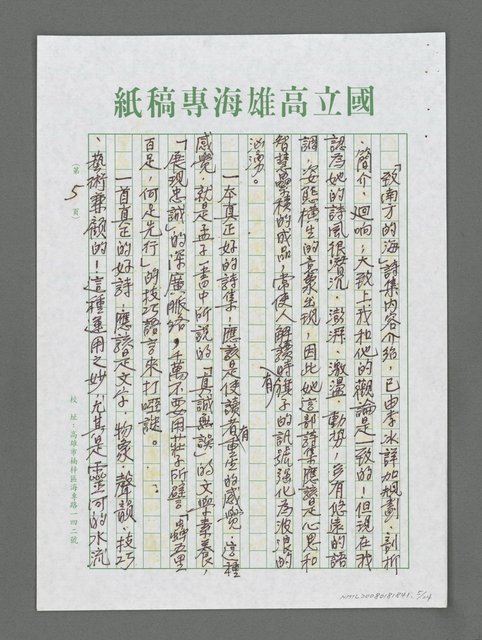 國立高雄海專稿紙
「致南方的海」詩集內容介紹，已由李冰詳加規劃、剖析
、簡介、迴响，大致上我和他的觀論是一致的！但現在我
認為她的詩風很凝沉、澎湃、激盪、動勢，另有悠遠的語
調，姿態橫生的意象出現，因此她這部詩集應該是心思和
智慧疊積的成品，常使人解讀時有棋子的訊號強化為波浪的
洶湧。
一本真正好的詩集，應該是使讀者有重生的感覺，這種
感覺，就是孟子書中所說的「真誠無誤」的文學素養，
「展現忠誠」的深廣脈絡，千萬不要用莊子所譬「蟬虽
百足，何足先行」的技巧語言來打啞謎。
一首真正的好詩，應該是文字、物象、聲韻、技巧
、藝術兼顧的！這種運用之妙，尤其是靈河的水流
（第 5 頁）
校 址：高雄市楠梓區海專路一四二號
NMTL20080181841. 5/24